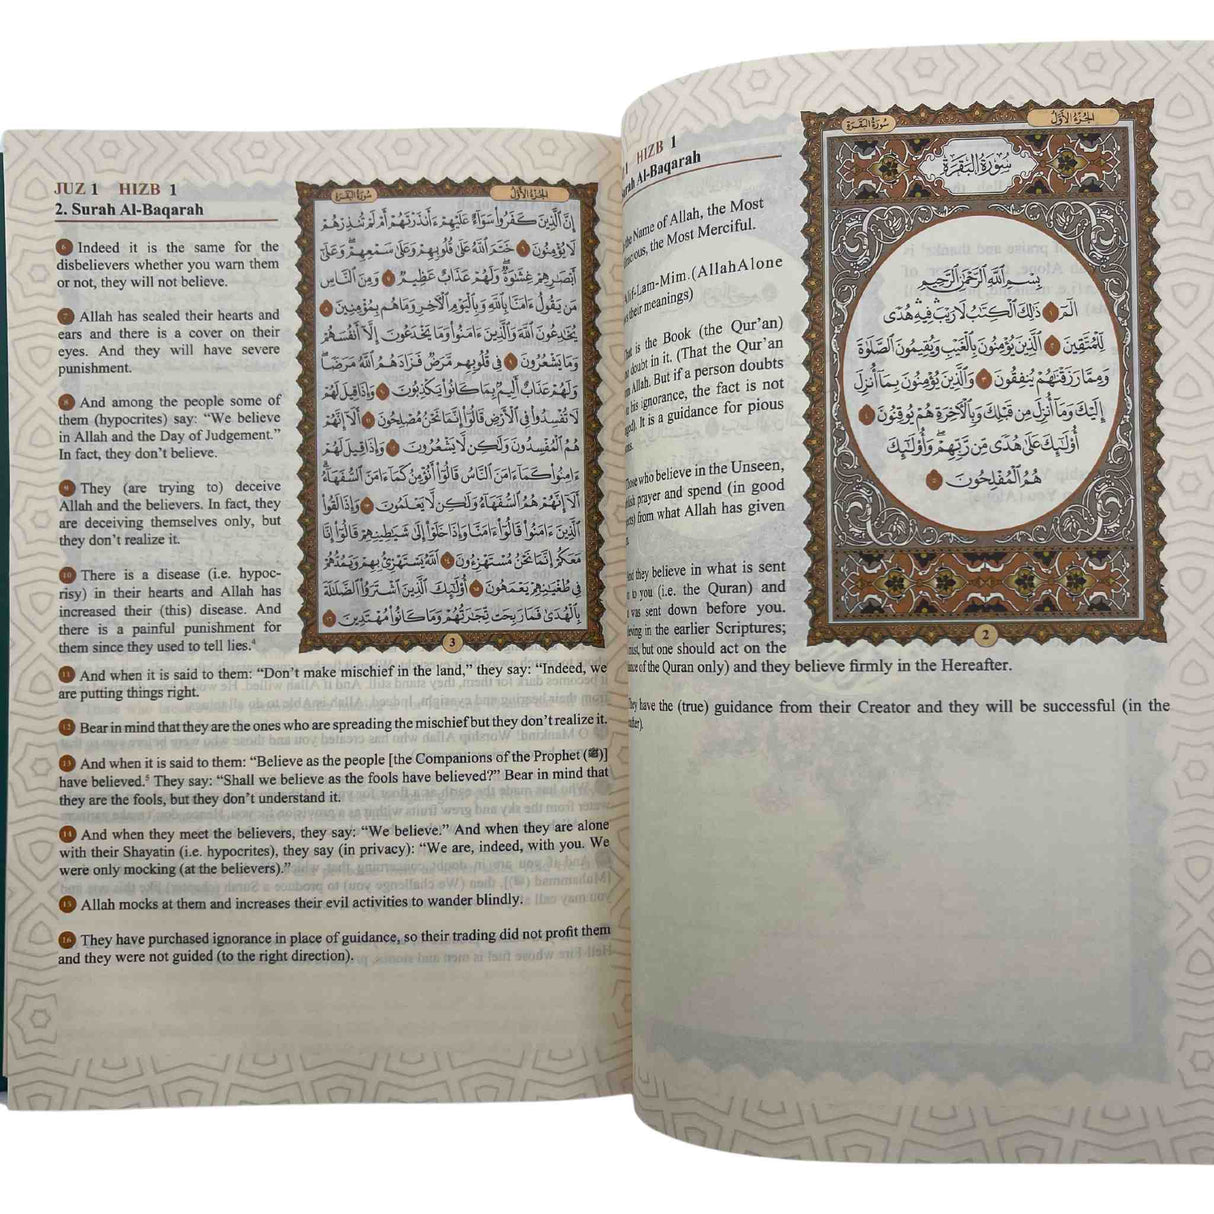 JUZ 1 HIZB 1
2. Surah Al-Baqarah
6 Indeed it is the same for the
disbelievers whether you warn them
or not, they will not believe.
7 Allah has sealed their hearts and
ears and there is a cover on their
eyes. And they will have severe
punishment.
8 And among the people some of
them (hypocrites) say: “We believe
in Allah and the Day of Judgement.”
In fact, they don’t believe.
9 They (are trying to) deceive
Allah and the believers. In fact, they
are deceiving themselves only, but
they don’t realize it.
10 There is a disease (i.e. hypoc-
risy) in their hearts and Allah has
increased their (this) disease. And
there is a painful punishment for
them since they used to tell lies.⁴
11 And when it is said to them: “Don’t make mischief in the land,” they say: “Indeed, we
are putting things right.
12 Bear in mind that they are the ones who are spreading the mischief but they don’t realize it.
13 And when it is said to them: “Believe as the people [the Companions of the Prophet (ﷺ)]
have believed.⁵ They say: “Shall we believe as the fools have believed?” Bear in mind that
they are the fools, but they don’t understand it.
14 And when they meet the believers, they say: “We believe.” And when they are alone
with their Shayatin (i.e. hypocrites), they say (in privacy): “We are, indeed, with you. We
were only mocking (at the believers).”
15 Allah mocks at them and increases their evil activities to wander blindly.
16 They have purchased ignorance in place of guidance, so their trading did not profit them
and they were not guided (to the right direction).
سُورَةُ البَقَرَة الجُزْءُ الأَوَّلُ
إِنَّ ٱلَّذِينَ كَفَرُوا۟ سَوَآءٌ عَلَيْهِمْ ءَأَنذَرْتَهُمْ أَمْ لَمْ تُنذِرْهُمْ
لَا يُؤْمِنُونَ ٦ خَتَمَ ٱللَّهُ عَلَىٰ قُلُوبِهِمْ وَعَلَىٰ سَمْعِهِمْ ۖ وَعَلَىٰٓ
أَبْصَٰرِهِمْ غِشَٰوَةٌ ۖ وَلَهُمْ عَذَابٌ عَظِيمٌ ٧ وَمِنَ ٱلنَّاسِ
مَن يَقُولُ ءَامَنَّا بِٱللَّهِ وَبِٱلْيَوْمِ ٱلْءَاخِرِ وَمَا هُم بِمُؤْمِنِينَ ٨
يُخَٰدِعُونَ ٱللَّهَ وَٱلَّذِينَ ءَامَنُوا۟ وَمَا يَخْدَعُونَ إِلَّآ أَنفُسَهُمْ
وَمَا يَشْعُرُونَ ٩ فِى قُلُوبِهِم مَّرَضٌ فَزَادَهُمُ ٱللَّهُ مَرَضًا ۖ
وَلَهُمْ عَذَابٌ أَلِيمٌۢ بِمَا كَانُوا۟ يَكْذِبُونَ ١٠ وَإِذَا قِيلَ لَهُمْ
لَا تُفْسِدُوا۟ فِى ٱلْأَرْضِ قَالُوٓا۟ إِنَّمَا نَحْنُ مُصْلِحُونَ ١١ أَلَآ إِنَّهُمْ
هُمُ ٱلْمُفْسِدُونَ وَلَٰكِن لَّا يَشْعُرُونَ ١٢ وَإِذَا قِيلَ لَهُمْ
ءَامِنُوا۟ كَمَآ ءَامَنَ ٱلنَّاسُ قَالُوٓا۟ أَنُؤْمِنُ كَمَآ ءَامَنَ ٱلسُّفَهَآءُ ۗ
أَلَآ إِنَّهُمْ هُمُ ٱلسُّفَهَآءُ وَلَٰكِن لَّا يَعْلَمُونَ ١٣ وَإِذَا لَقُوا۟
ٱلَّذِينَ ءَامَنُوا۟ قَالُوٓا۟ ءَامَنَّا وَإِذَا خَلَوْا۟ إِلَىٰ شَيَٰطِينِهِمْ قَالُوٓا۟ إِنَّا
مَعَكُمْ إِنَّمَا نَحْنُ مُسْتَهْزِءُونَ ١٤ ٱللَّهُ يَسْتَهْزِئُ بِهِمْ وَيَمُدُّهُمْ
فِى طُغْيَٰنِهِمْ يَعْمَهُونَ ١٥ أُو۟لَٰٓئِكَ ٱلَّذِينَ ٱشْتَرَوُا۟ ٱلضَّلَٰلَةَ
بِٱلْهُدَىٰ فَمَا رَبِحَت تِّجَٰرَتُهُمْ وَمَا كَانُوا۟ مُهْتَدِينَ ١٦
3
1 HIZB 1
Al-Baqarah
Name of Allah, the Most
the Most Merciful.
Alif-Lam-Mim. (Allah Alone
their meanings)
is the Book (the Qur’an)
doubt in it. (That the Qur’an
Allah. But if a person doubts
his ignorance, the fact is not
It is a guidance for pious
Those who believe in the Unseen,
prayer and spend (in good
from what Allah has given
they believe in what is sent
to you (i.e. the Quran) and
was sent down before you.
in the earlier Scriptures;
but one should act on the
of the Quran only) and they believe firmly in the Hereafter.
They have the (true) guidance from their Creator and they will be successful (in the
سُورَةُ البَقَرَة الجُزْءُ الأَوَّلُ
سُورَةُ البَقَرَةِ
بِسْمِ ٱللَّهِ ٱلرَّحْمَٰنِ ٱلرَّحِيمِ
الٓمٓ ١ ذَٰلِكَ ٱلْكِتَٰبُ لَا رَيْبَ ۛ فِيهِ ۛ هُدًى
لِّلْمُتَّقِينَ ٢ ٱلَّذِينَ يُؤْمِنُونَ بِٱلْغَيْبِ وَيُقِيمُونَ ٱلصَّلَوٰةَ
وَمِمَّا رَزَقْنَٰهُمْ يُنفِقُونَ ٣ وَٱلَّذِينَ يُؤْمِنُونَ بِمَآ أُنزِلَ
إِلَيْكَ وَمَآ أُنزِلَ مِن قَبْلِكَ وَبِٱلْءَاخِرَةِ هُمْ يُوقِنُونَ ٤
أُو۟لَٰٓئِكَ عَلَىٰ هُدًى مِّن رَّبِّهِمْ ۖ وَأُو۟لَٰٓئِكَ
هُمُ ٱلْمُفْلِحُونَ ٥
2